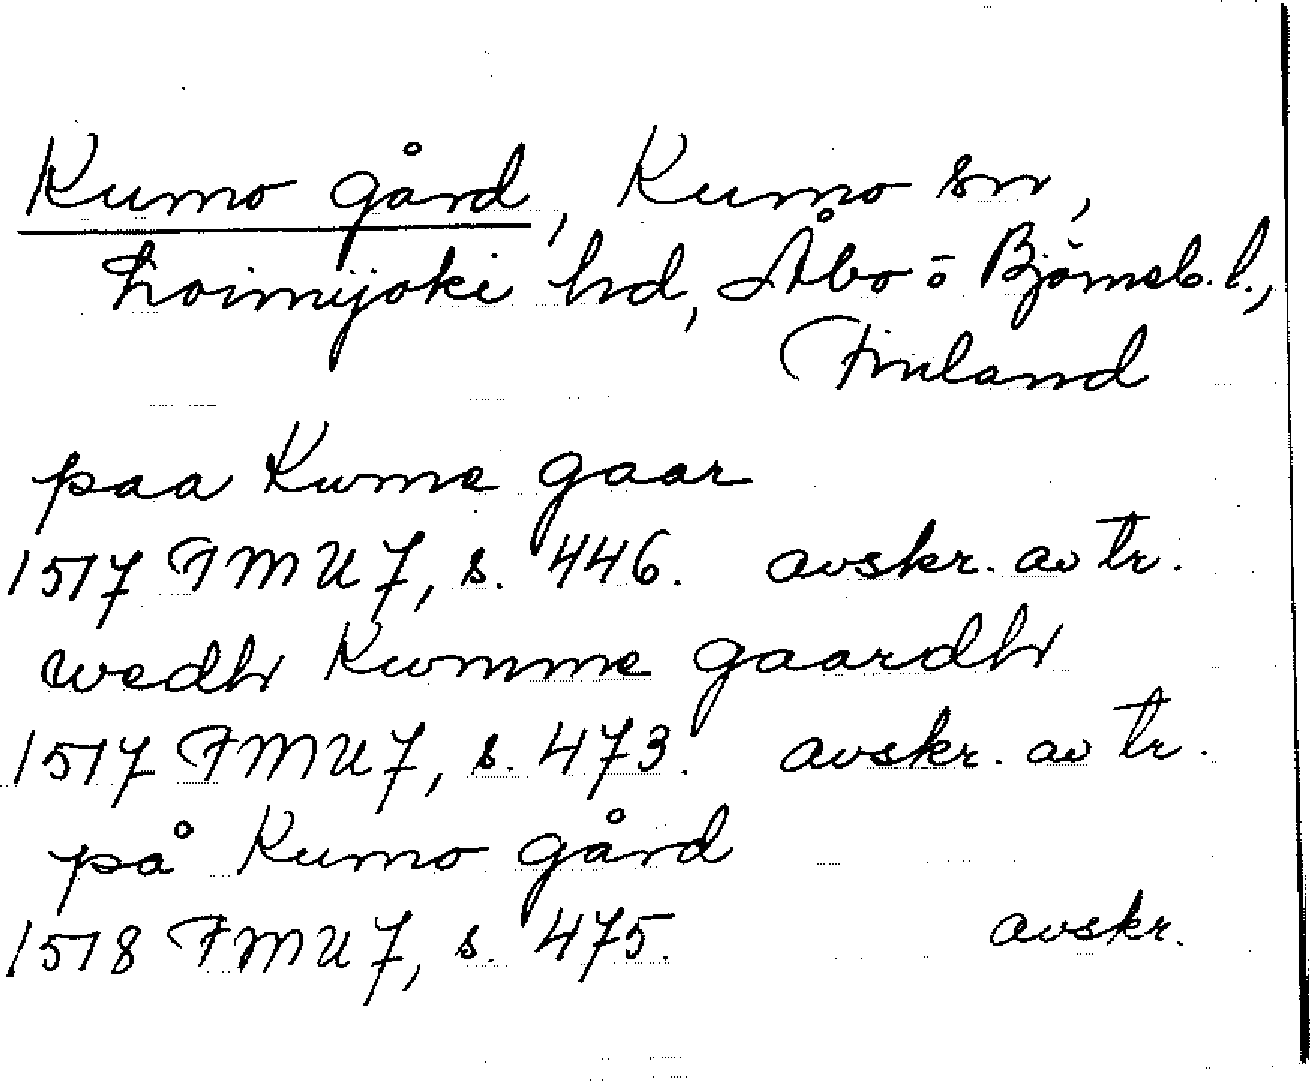 Kumo gård, Kumo sn,
Loimijoki hd, Åbo o Björneb. l.,
Finland
paa Kwme gaar
1517 FMU 7, s. 446. avskr. av tr.
wedh Kwmme gaardh
1517 FMU 7, s. 473. avskr. av tr.
på Kumo gård
1518 FMU 7, s. 475. avskr.